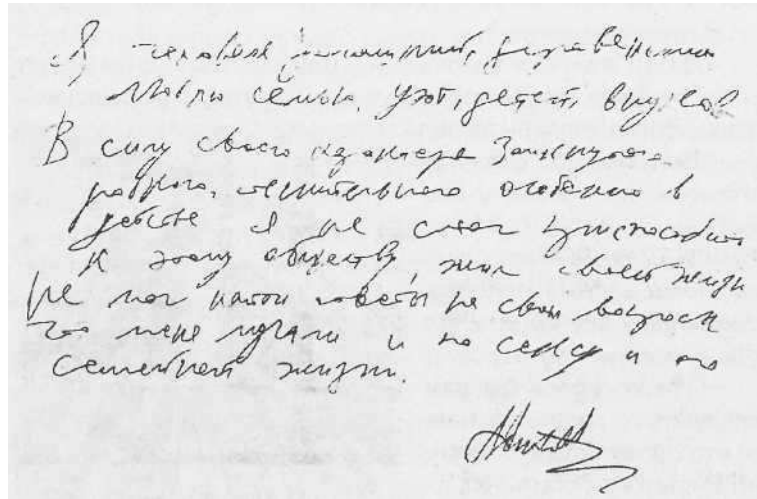 Я человек домашний, деревенский
Люблю семью, уют, детей, внуков
В силу своего характера замкнутого
робкого, стеснительного особенно в
детстве я не смог приспособиться
к этому обществу, жил своей жизнью
не мог найти ответы на свои вопросы
что меня мучали и по сексу и по
семейной жизни.